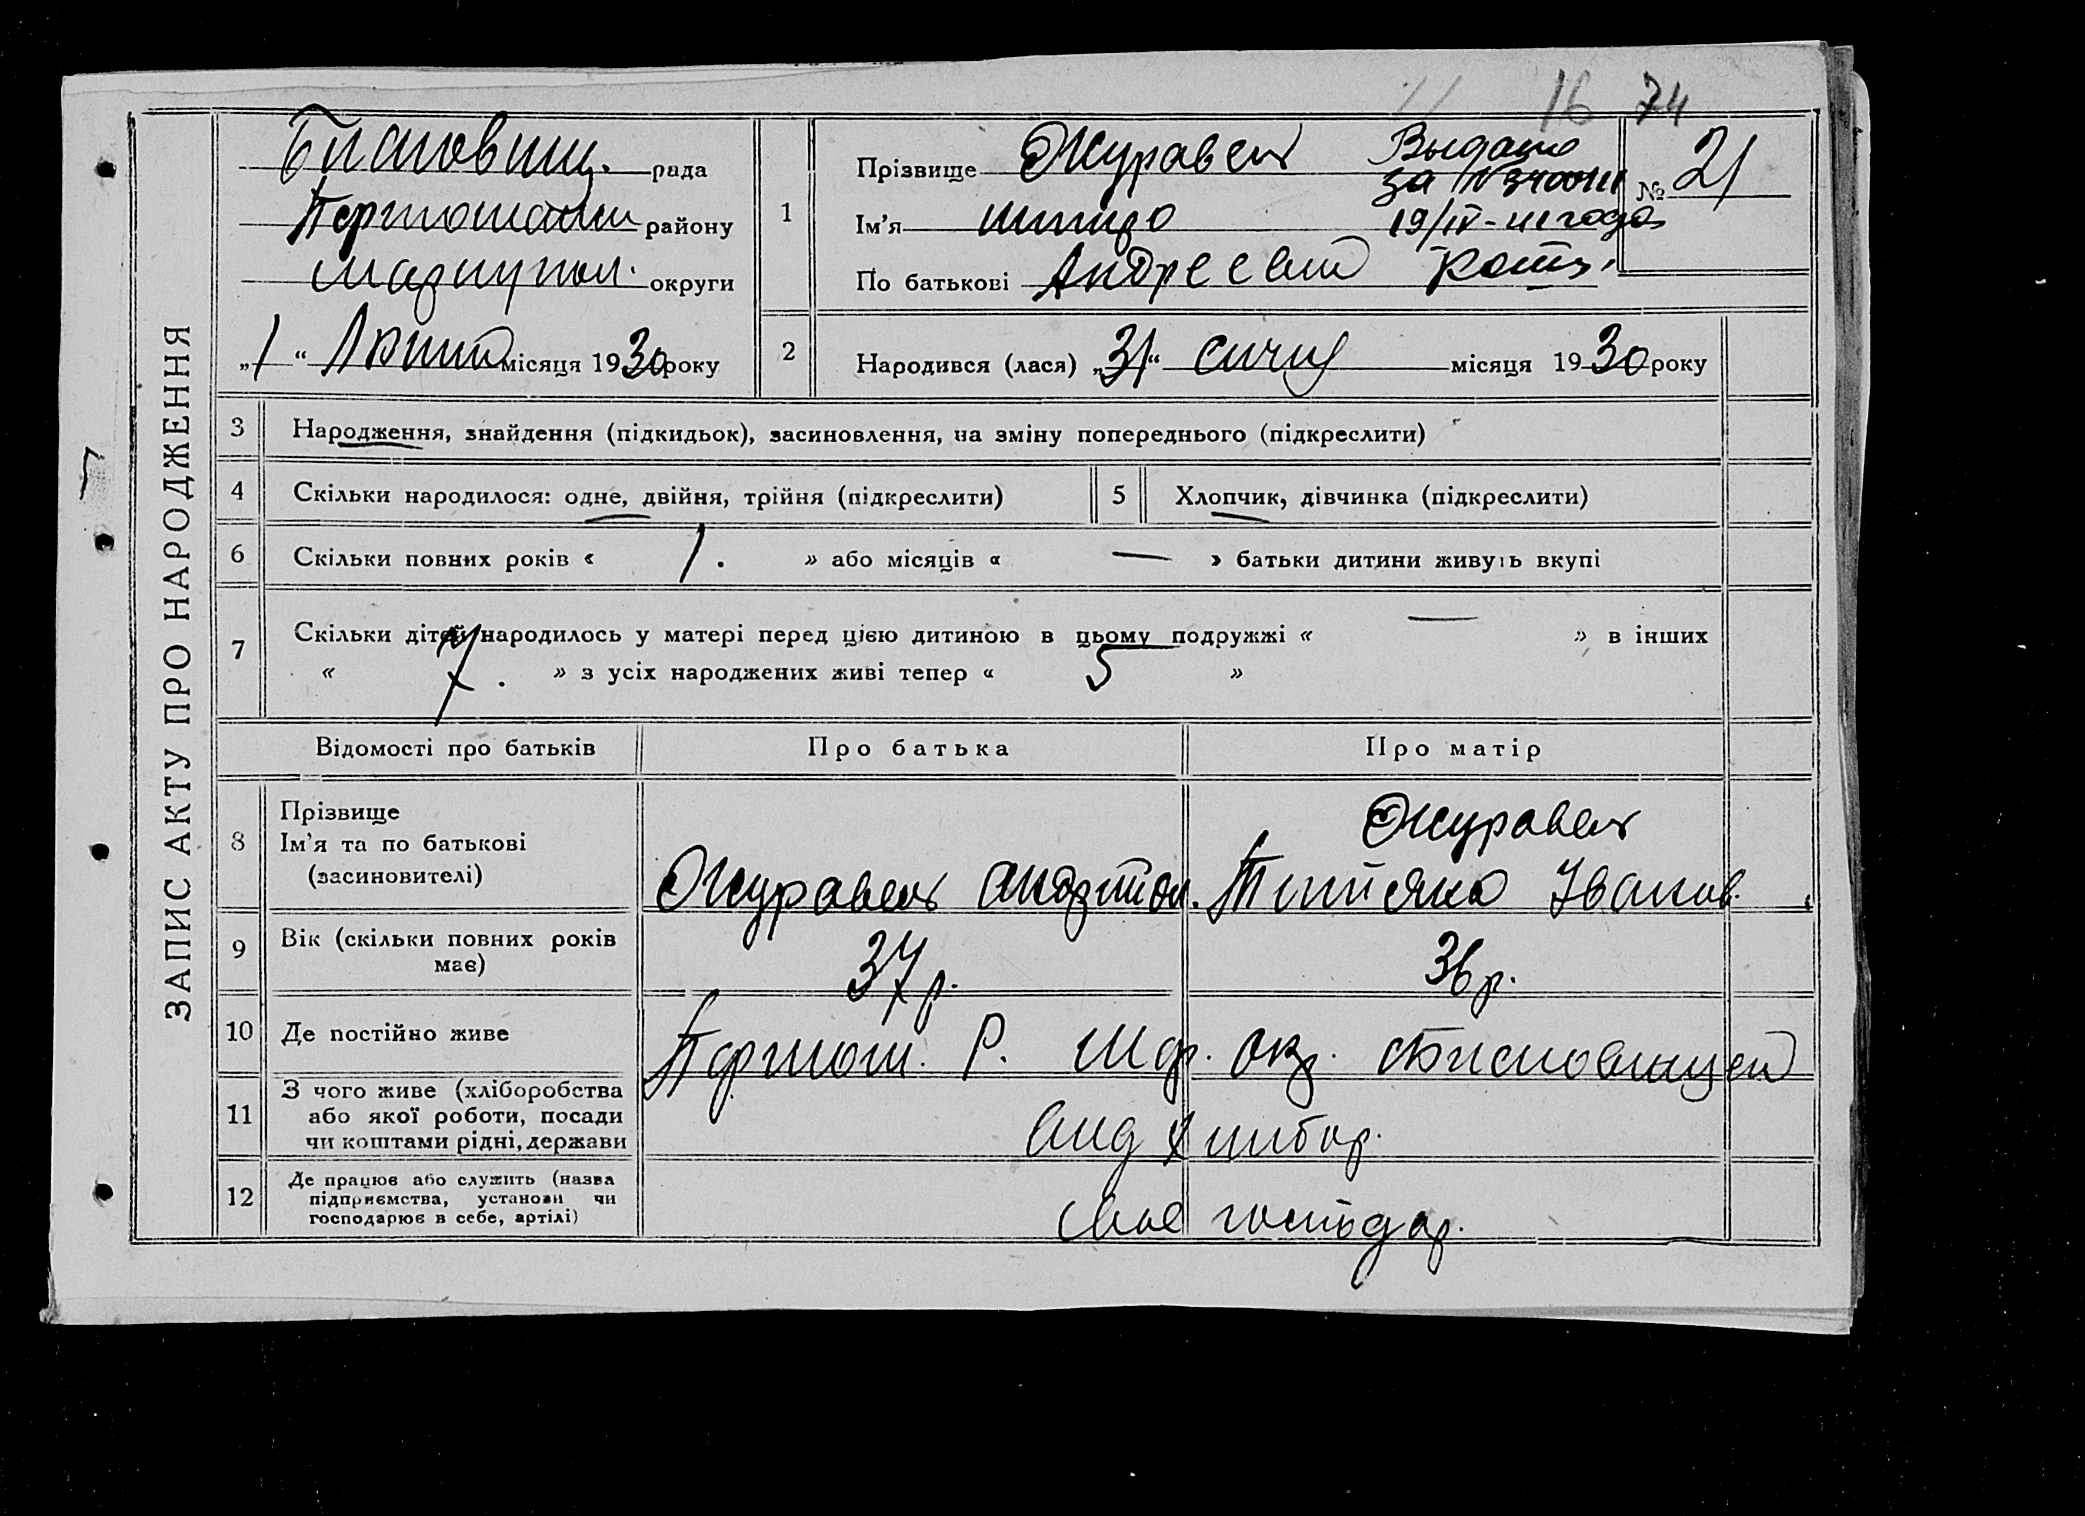 16 74
ЗАПИС АКТУ ПРО НАРОДЖЕННЯ
рада
району
Мариупол. округи
„1“ Лютий місяця 1930 року
1
Прізвище Журавель
Ім'я
По батькові Андреевич
Выдано
за №
19/IV-41 года
№ 21
2
Народився (лася) „31“ січня місяця 1930 року
3 Народження, знайдення (підкидьок), засиновлення, на зміну попереднього (підкреслити)
4 Скільки народилося: одне, двійня, трійня (підкреслити)
5 Хлопчик, дівчинка (підкреслити)
6 Скільки повних років « 1. » або місяців « — » батьки дитини живуть вкупі
7 Скільки дітей народилось у матері перед цією дитиною в цьому подружжі « — » в інших
« 7. » з усіх народжених живі тепер « 5 »
Відомості про батьків
Про батька
Про матір
8 Прізвище
Ім'я та по батькові
(засиновителі)
Журавель
Журавель
Іванов.
9 Вік (скільки повних років
має)
37 р.
36 р.
10 Де постійно живе
Р. окр.
11 З чого живе (хліборобства
або якої роботи, посади
чи коштами рідні, держави
від хлібор.
12 Де працює або служить (назва
підприємства, установи чи
господарює в себе, артілі)
своє господар.